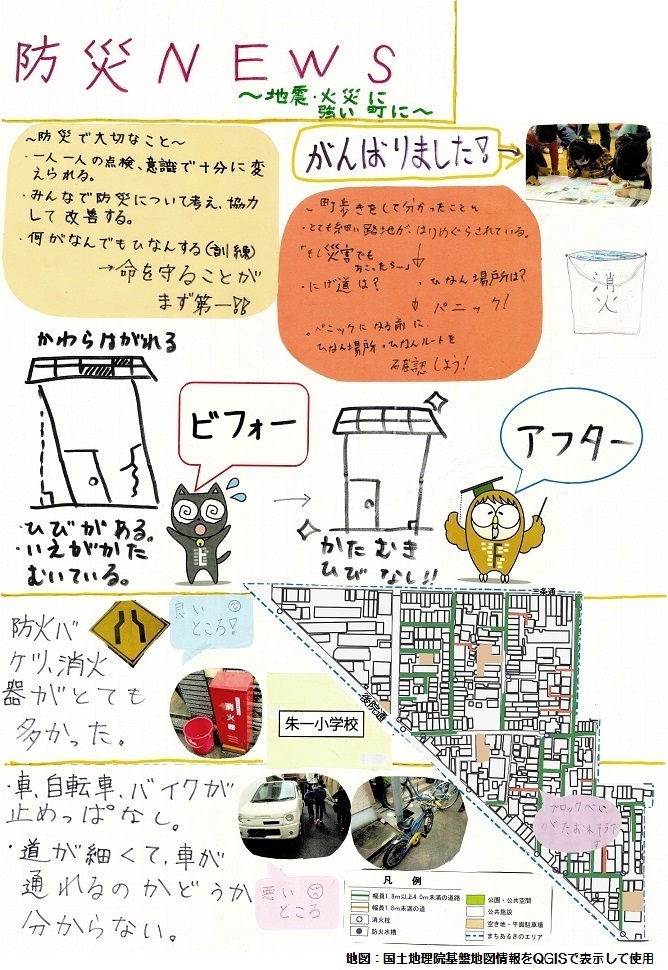 防災NEWS
～地震・火災に
強い町に～
～防災で大切なこと～
・一人一人の点検、意識で十分に変
えられる。
・みんなで防災について考え、協力
して改善する。
・何がなんでもひなんする(訓練)
→命を守ることが
まず第一!!
がんばりました!
町歩きをして分かったこと
・とても細い路地が、はりめぐらされている。
「もし災害でも
おこったら…」
・にげ道は?
・ひなん場所は?
パニック!
パニックになる前に
ひなん場所・ひなんルートを
確認しよう!
消火
かわらはがれる
ビフォー
アフター
・ひびがある。
・いえがかた
むいている。
→
かたむき
ひびなし!!
防火バ
ケツ、消火
器がとても
多かった。
良い
ところ!
消火器
三条通
後院通
朱一小学校
・車、自転車、バイクが
止めっぱなし。
・道が細くて、車が
通れるのかどうか
分からない。
悪い
ところ
ブロックべい
がたおれそうで
す
凡例
幅員1.8m以上4.0m未満の道路
幅員1.8m未満の道
消火栓
防火水槽
公園・公共空間
公共施設
空き地・平面駐車場
まちあるきのエリア
地図：国土地理院基盤地図情報をQGISで表示して使用